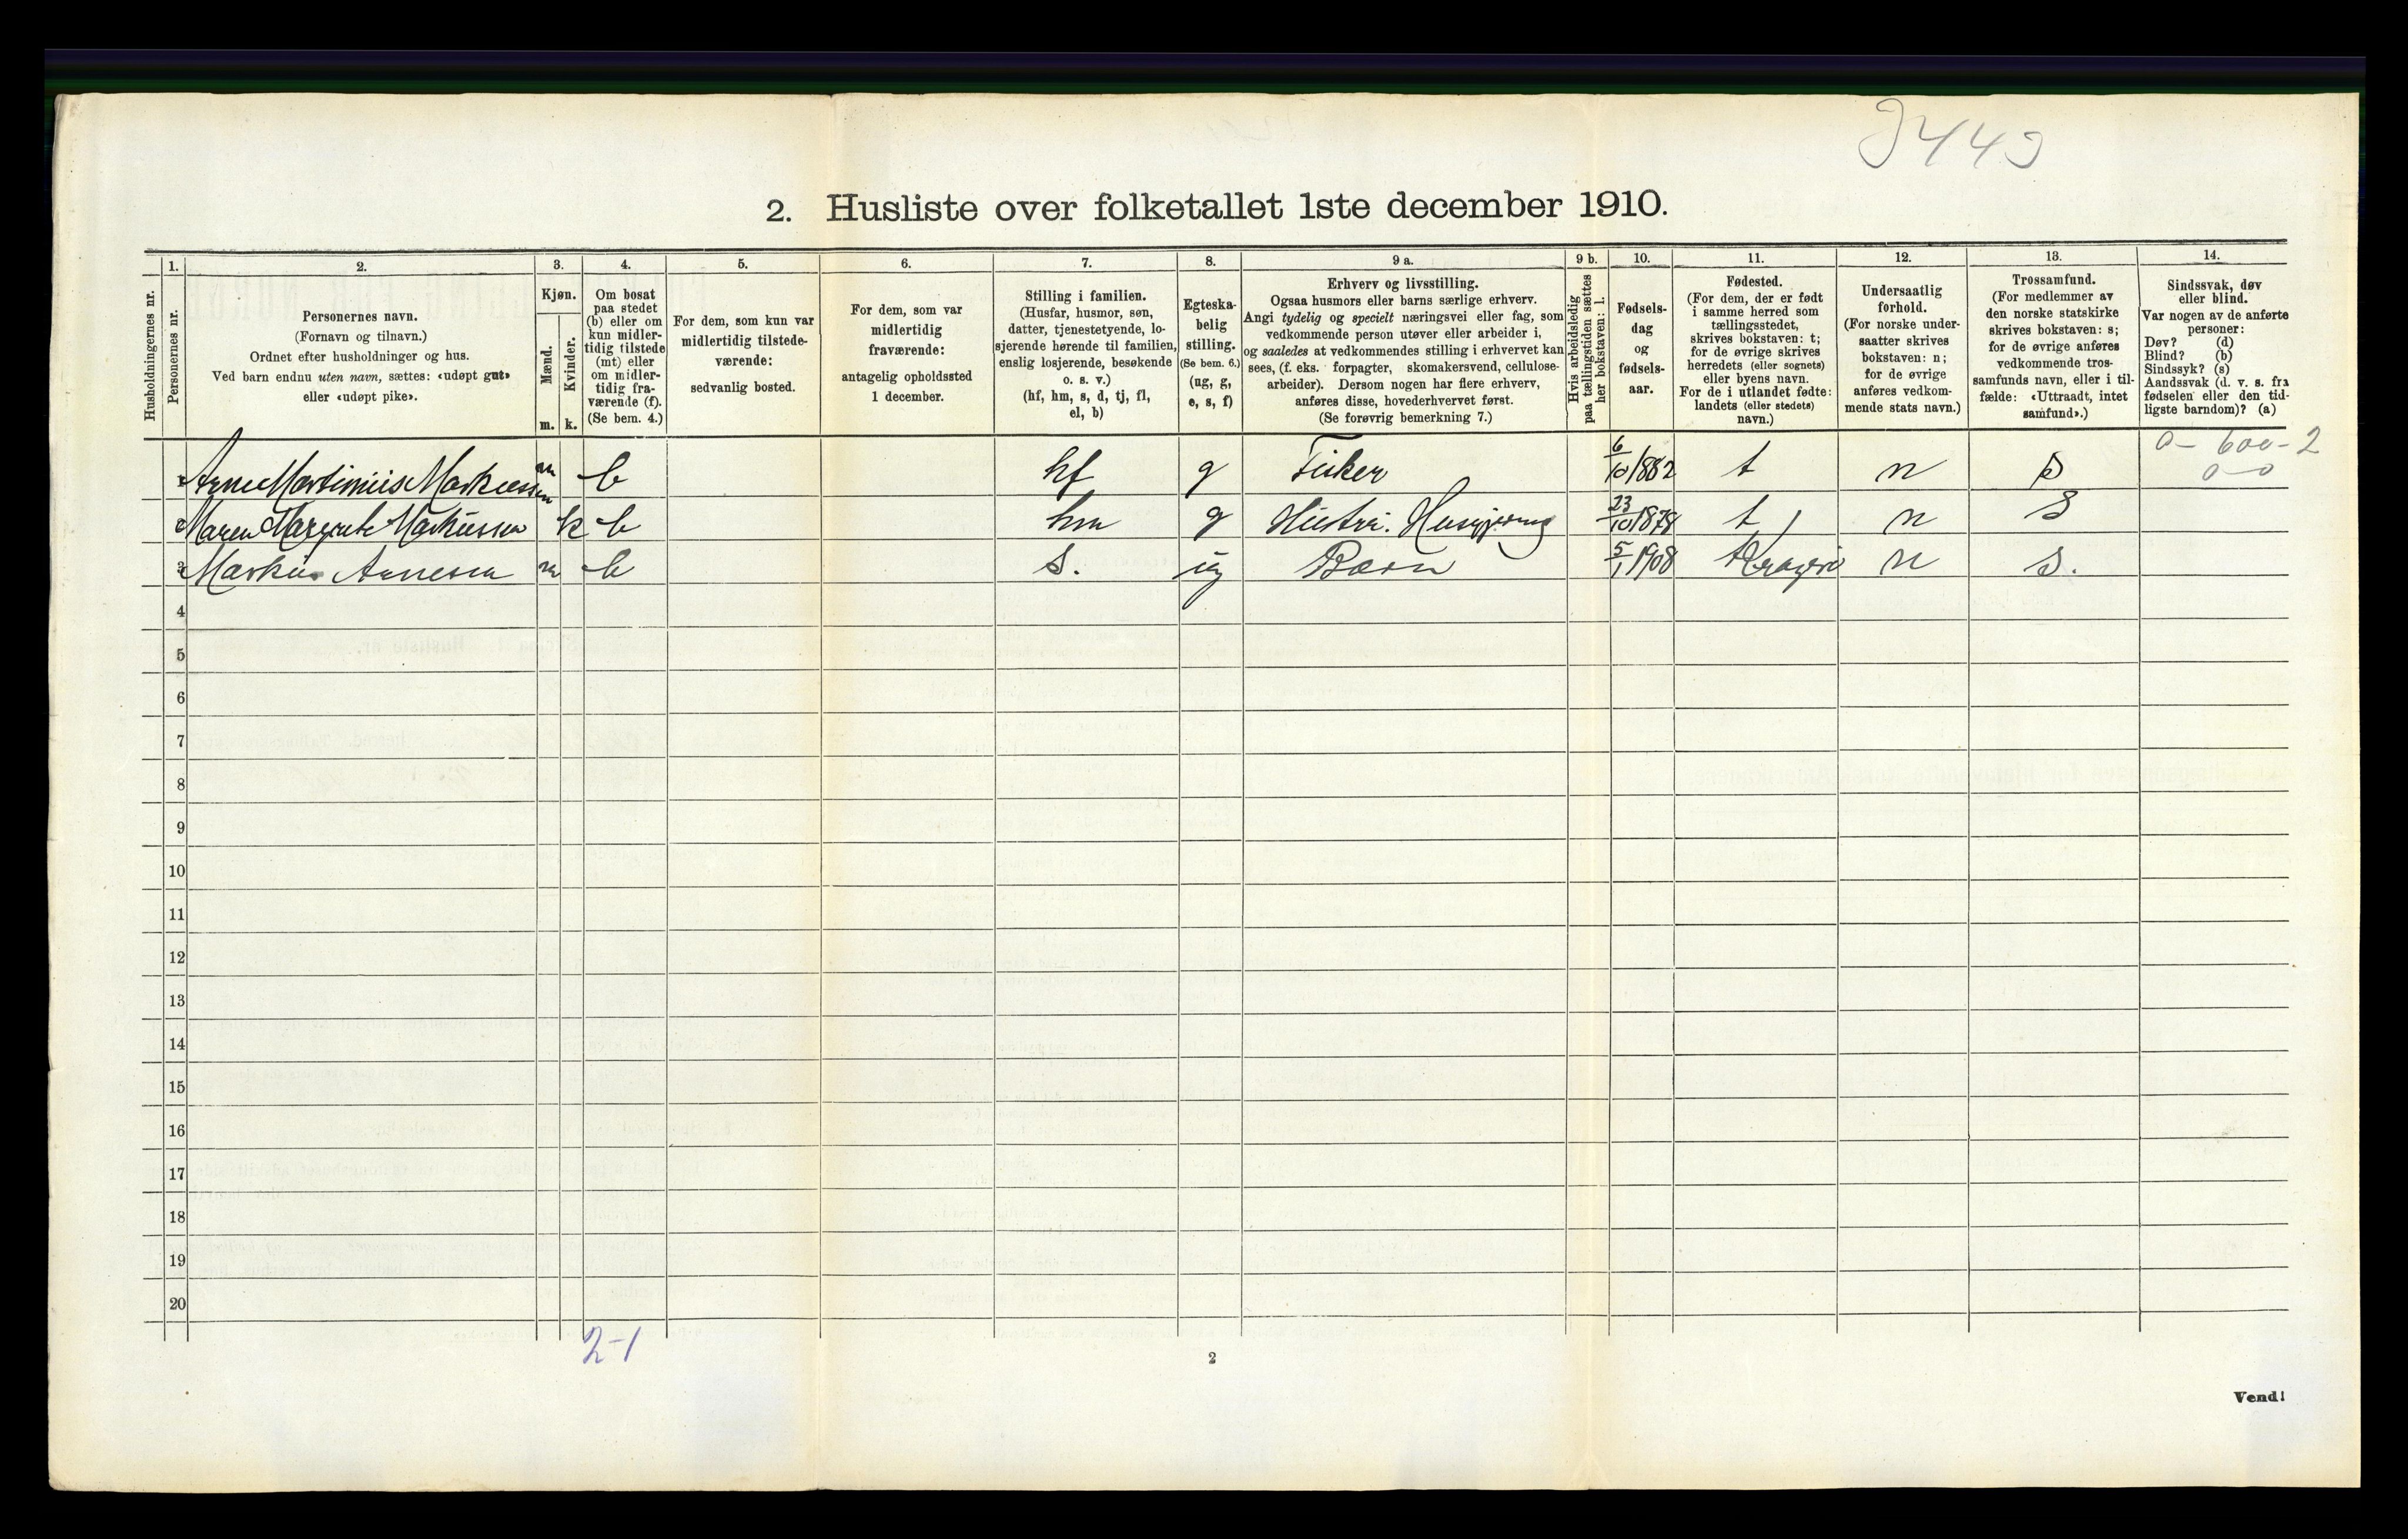 3443
2. Husliste over folketallet 1ste december 1910.
Husholdningernes nr.
1.
Personernes nr.
2.
Personernes navn.
(Fornavn og tilnavn.)
Ordnet efter husholdninger og hus.
Ved barn endnu uten navn, sættes: «udøpt gut»
eller «udøpt pike».
3.
Kjøn.
Mænd.
Kvinder.
m. k.
4.
Om bosat
paa stedet
(b) eller om
kun midler-
tidig tilstede
(mt) eller
om midler-
tidig fra-
værende (f).
(Se bem. 4.)
5.
For dem, som kun var
midlertidig tilstede-
værende:
sedvanlig bosted.
6.
For dem, som var
midlertidig
fraværende:
antagelig opholdssted
1 december.
7.
Stilling i familien.
(Husfar, husmor, søn,
datter, tjenestetyende, lo-
sjerende hørende til familien,
enslig losjerende, besøkende
o. s. v.)
(hf, hm, s, d, tj, fl,
el, b)
8.
Egteska-
belig
stilling.
(Se bem. 6.)
(ug, g,
e, s, f)
9 a.
Erhverv og livsstilling.
Ogsaa husmors eller barns særlige erhverv.
Angi tydelig og specielt næringsvei eller fag, som
vedkommende person utøver eller arbeider i,
og saaledes at vedkommendes stilling i erhvervet kan
sees, (f. eks. forpagter, skomakersvend, cellulose-
arbeider). Dersom nogen har flere erhverv,
anføres disse, hovederhvervet først.
(Se forøvrig bemerkning 7.)
9 b.
Hvis arbeidsledig
paa tællingstiden sættes
her bokstaven: l.
10.
Fødsels-
dag
og
fødsels-
aar.
11.
Fødested.
(For dem, der er født
i samme herred som
tællingsstedet,
skrives bokstaven: t;
for de øvrige skrives
herredets (eller sognets)
eller byens navn.
For de i utlandet fødte:
landets (eller stedets)
navn.)
12.
Undersaatlig
forhold.
(For norske under-
saatter skrives
bokstaven: n;
for de øvrige
anføres vedkom-
mende stats navn.)
13.
Trossamfund.
(For medlemmer av
den norske statskirke
skrives bokstaven: s;
for de øvrige anføres
vedkommende tros-
samfunds navn, eller i til-
fælde: «Uttraadt, intet
samfund».)
14.
Sindssvak, døv
eller blind.
Var nogen av de anførte
personer:
Døv? (d)
Blind? (b)
Sindssyk? (s)
Aandssvak (d. v. s. fra
fødselen eller den tid-
ligste barndom)? (a)
0 - 600 - 2
0 - 0
1 Arne Martinius Markussen m b hf g Fisker 6/10 1882 t n s
2 Maren Margrete Markussen k b hm g Hustru. Husgjerning 23/10 1878 t n s
3 Markus Arnesen m b s. ug Barn 5/1 1908 Kragerø n s.
4
5
6
7
8
9
10
11
12
13
14
15
16
17
18
19
20
2-1
2
Vend!